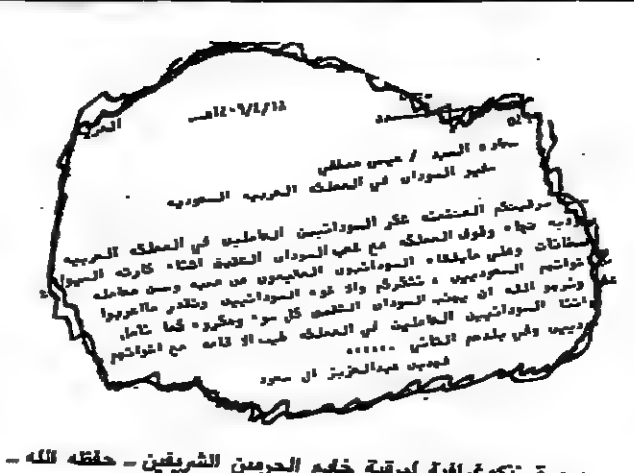 ١٤٠٦/٤/١٤هـ
سعادة السيد / عيسى مصطفى
سفير السودان في المملكة العربيه السعوديه
برقيتكم المتضمنه شكر السودانيين العاملين في المملكه العربيه
تجاه وقوف المملكه مع شعب السودان الشقيق اثناء كارثه السيول
وعلى مايلقاه السودانيون المقيمون من محبه وحسن معامله
السعوديين ، نشكركم والاخوه السودانيين ونقدر مااعربوا
ونرجو الله ان يجنب السودان الشقيق كل سوء ومكروه كما نأمل
السودانيين العاملين في المملكه طيب الاقامه مع اخوانهم
وفي بلدهم الثاني ......
فهد بن عبدالعزيز ال سعود
لبرقية خادم الحرمين الشريفين ـ حفظه الله ـ